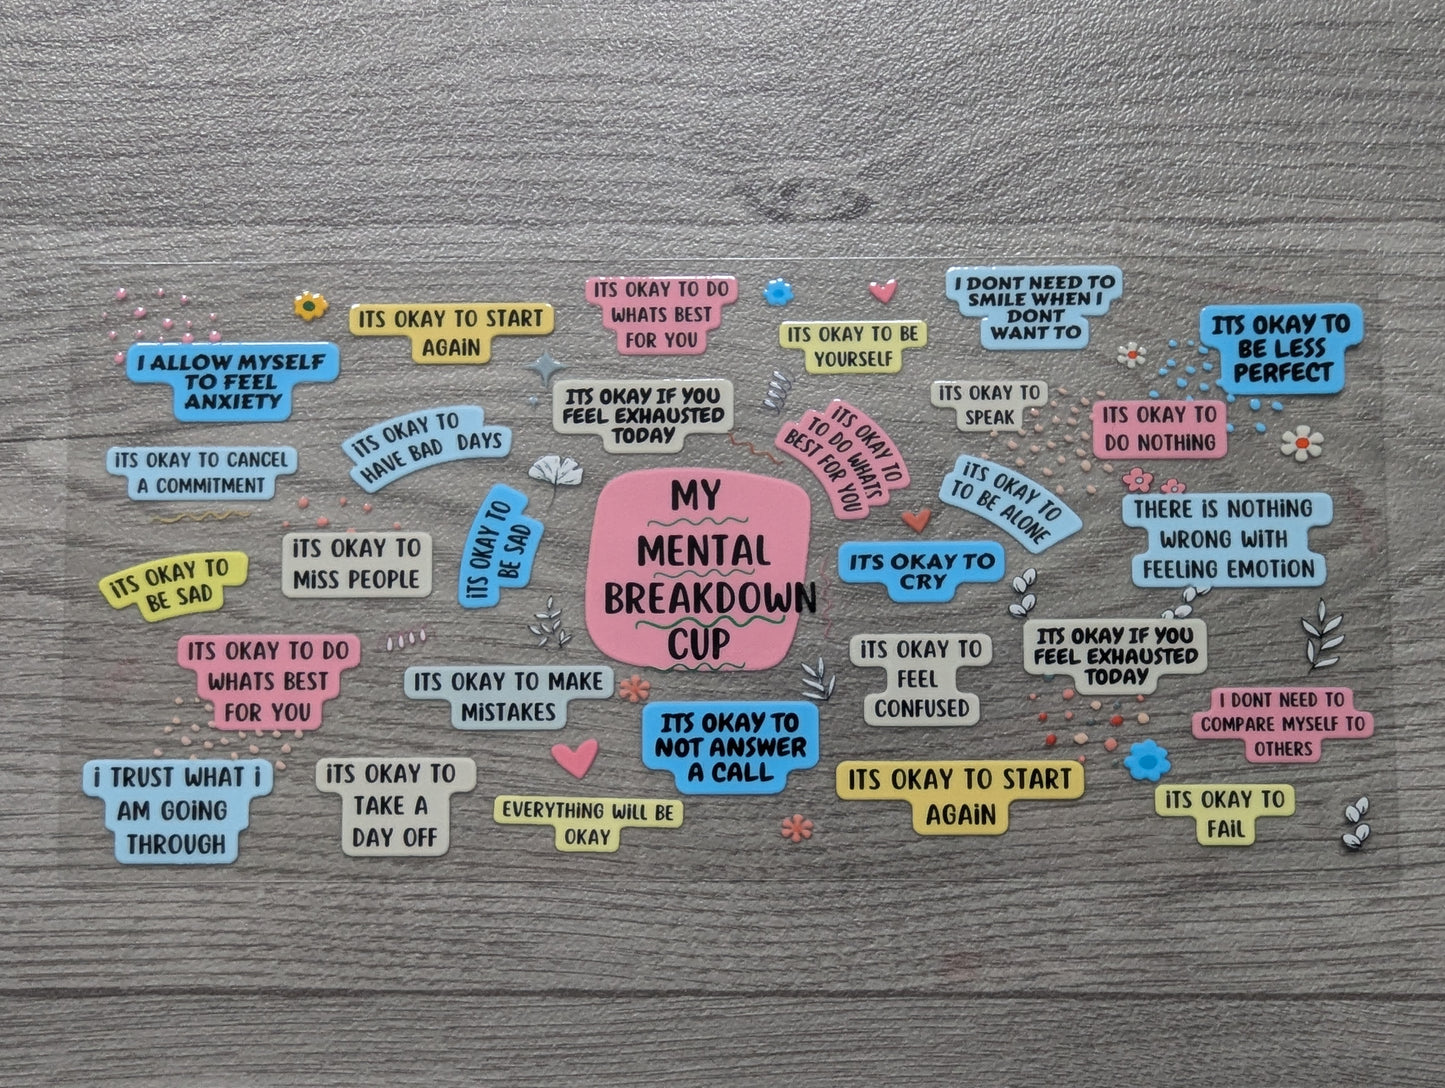 ITS OKAY TO START
AGAIN
ITS OKAY TO DO
WHATS BEST
FOR YOU
ITS OKAY TO BE
YOURSELF
I DONT NEED TO
SMILE WHEN I
DONT
WANT TO
ITS OKAY TO
BE LESS
PERFECT
I ALLOW MYSELF
TO FEEL
ANXIETY
ITS OKAY IF YOU
FEEL EXHAUSTED
TODAY
ITS OKAY TO
SPEAK
ITS OKAY TO
DO NOTHING
ITS OKAY TO CANCEL
A COMMITMENT
ITS OKAY TO
HAVE BAD DAYS
ITS OKAY TO
TO DO WHATS
BEST FOR YOU
ITS OKAY TO
TO BE ALONE
THERE IS NOTHING
WRONG WITH
FEELING EMOTION
MY
MENTAL
BREAKDOWN
CUP
ITS OKAY TO
BE SAD
ITS OKAY TO
MISS PEOPLE
ITS OKAY TO
BE SAD
ITS OKAY TO
CRY
ITS OKAY TO DO
WHATS BEST
FOR YOU
ITS OKAY TO MAKE
MISTAKES
ITS OKAY TO
FEEL
CONFUSED
ITS OKAY IF YOU
FEEL EXHAUSTED
TODAY
I DONT NEED TO
COMPARE MYSELF TO
OTHERS
ITS OKAY TO
NOT ANSWER
A CALL
I TRUST WHAT I
AM GOING
THROUGH
ITS OKAY TO
TAKE A
DAY OFF
EVERYTHING WILL BE
OKAY
ITS OKAY TO START
AGAIN
ITS OKAY TO
FAIL